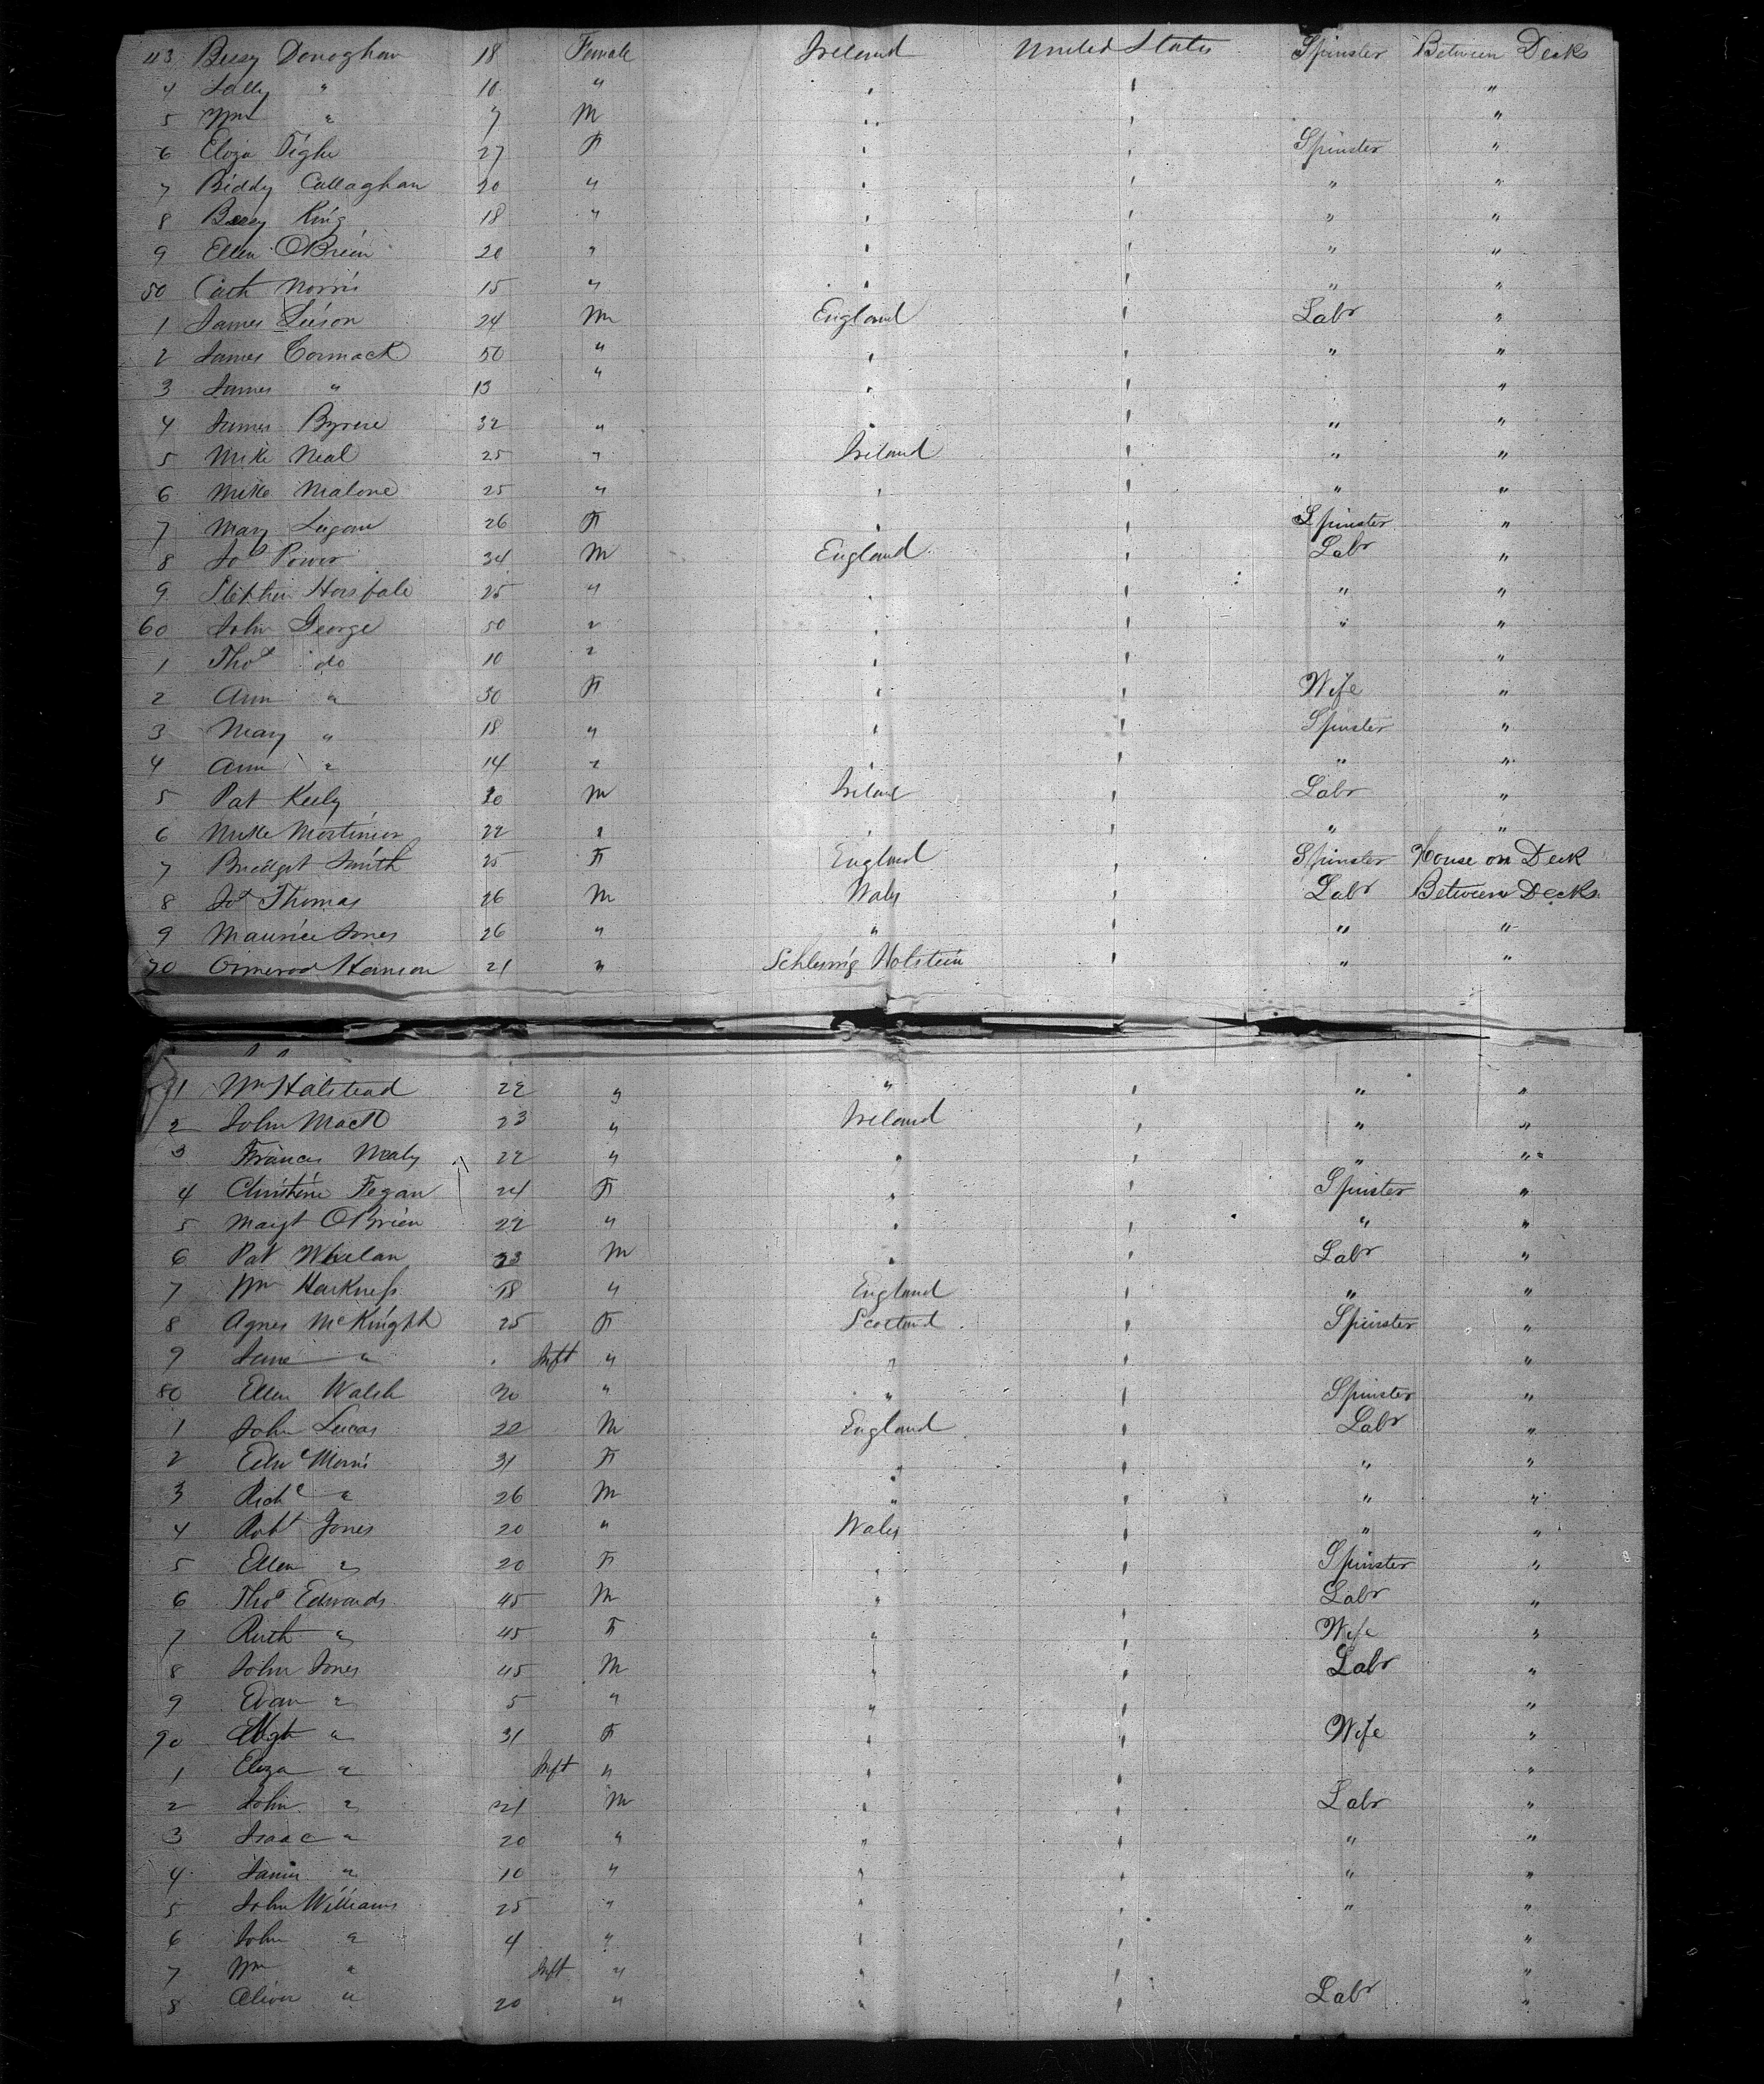 43 Bessy Donoghan 18 Female Ireland United States Spinster Between Decks
4 Sally " 10 " " " "
5 Wm " 7 M " " "
6 Eliza Tighe 27 F " " Spinster "
7 Biddy Callaghan 20 " " " " "
8 Bessy King 18 " " " " "
9 Ellen OBrien 20 " " " " "
50 Cath Norris 15 " " " " "
1 James Leeson 24 M England " Labr "
2 James Cormack 50 " " " " "
3 James " 13 " " " "
4 James Byrne 32 " " " " "
5 Mike Neal 25 " Ireland " " "
6 Mike Malone 25 " " " " "
7 Mary 26 F " " Spinster "
8 Jos Power 34 M England " Labr "
9 Stephen Horsfale 25 " " " " "
60 John George 50 " " " " "
1 Thos do 10 " " " "
2 Ann " 50 F " " Wife "
3 Mary " 18 " " " Spinster "
4 Ann " 14 " " " " "
5 Pat Keely M Ireland " Labr "
6 Mike Mortimer 22 " " " " "
7 Bridget Smith 25 F England " Spinster House on Deck
8 Jos Thomas 26 M Wales " Labr Between Decks
9 Maurice Jones 26 " " " " "
70 Ormerod Hanson 21 " Schleswig Holstein " " "
71 Wm Halstead 22 " " " " "
2 John Mack 23 " Ireland " " "
3 Frances Nealy 22 " " " " "
4 Christine Fegan 24 F " " Spinster "
5 Margt OBrien 22 " " " " "
6 Pat Whelan 23 M " " Labr "
7 Wm Harkness 18 " England " " "
8 Agnes McKnight 25 F Scotland " Spinster "
9 Jane " Inft " " " "
80 Ellen Walsh 20 " " " Spinster "
1 John Lucas 22 M England " Labr "
2 Morris 31 F " " " "
3 Richd " 26 M " " " "
4 Robt Jones 20 " Wales " " "
5 Ellen " 20 F " " Spinster "
6 Thos Edwards 45 M " " Labr "
7 Ruth " 45 F " " Wife "
8 John Jones 45 M " " Labr "
9 Evan " 5 " " " "
90 " 31 F " " Wife "
1 Eliza " Inft " " " "
2 John " 21 M " " Labr "
3 Isaac " 20 " " " " "
4 James " 10 " " " " "
5 John Williams 25 " " " " "
6 John " 4 " " " "
7 Wm " Inft " " " "
8 Oliver " 20 " " " Labr "